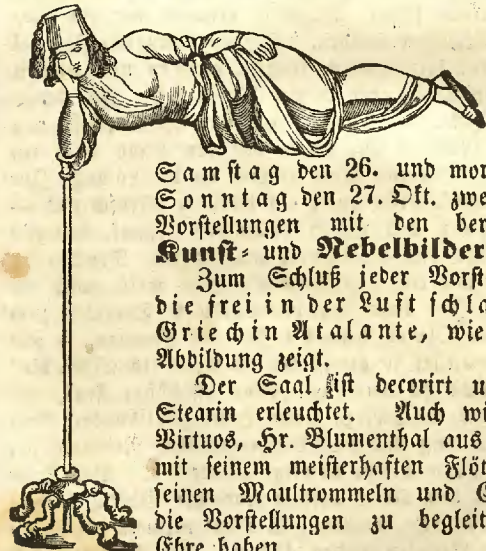 Samstag den 26. und mor
Sonntag den 27. Okt. zwe
Vorstellungen mit den ber
Kunst- und Nebelbilder
Zum Schluß jeder Vorst
die frei in der Luft schla
Griechin Atalante, wie
Abbildung zeigt.
Der Saal ist decorirt u
Stearin erleuchtet. Auch wi
Virtuos, Hr. Blumenthal aus
mit seinem meisterhaften Flöt
seinen Maultrommeln und G
die Vorstellungen zu begleit
Ehre haben